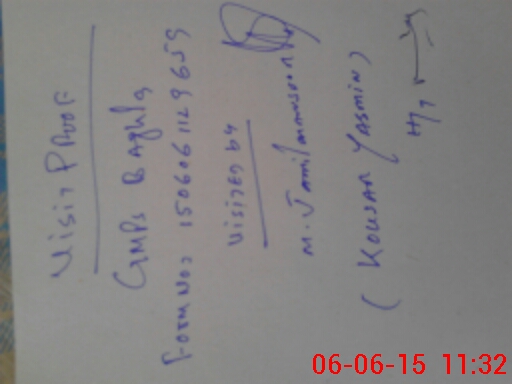 Visit Proof
GMPS Baghla
Form No: 150606112 9659
Visited by
M. Jamil
(Kousar Yasmin)
06-06-15 11:32